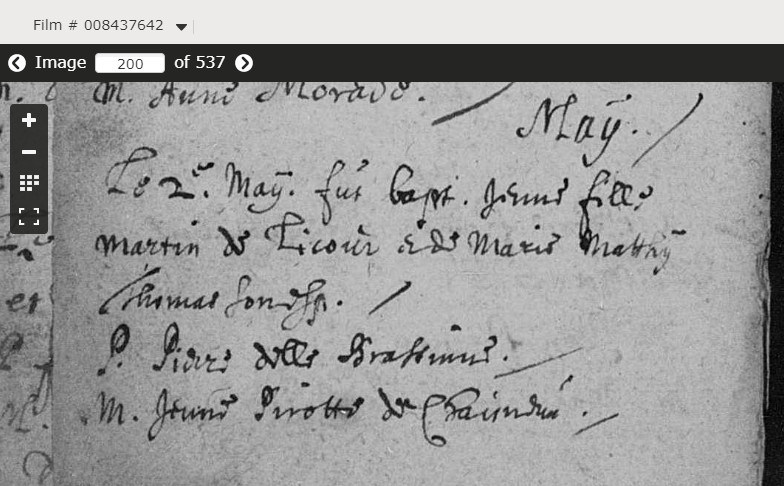 Film # 008437642
Image 200 of 537
M. Anne Morade.
Maÿ.
Le 2.e Maÿ. fut bapt. Jenne fille
Martin de Licour et de Marie Mathÿ
Thomas son esp.
P. Piere delle Brassinne.
M. Jenne Pirotte de